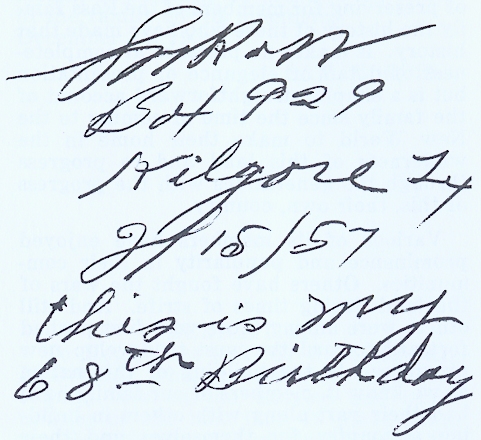 Box 929
Kilgore Tx
2/15/57
this is my
68th Birthday